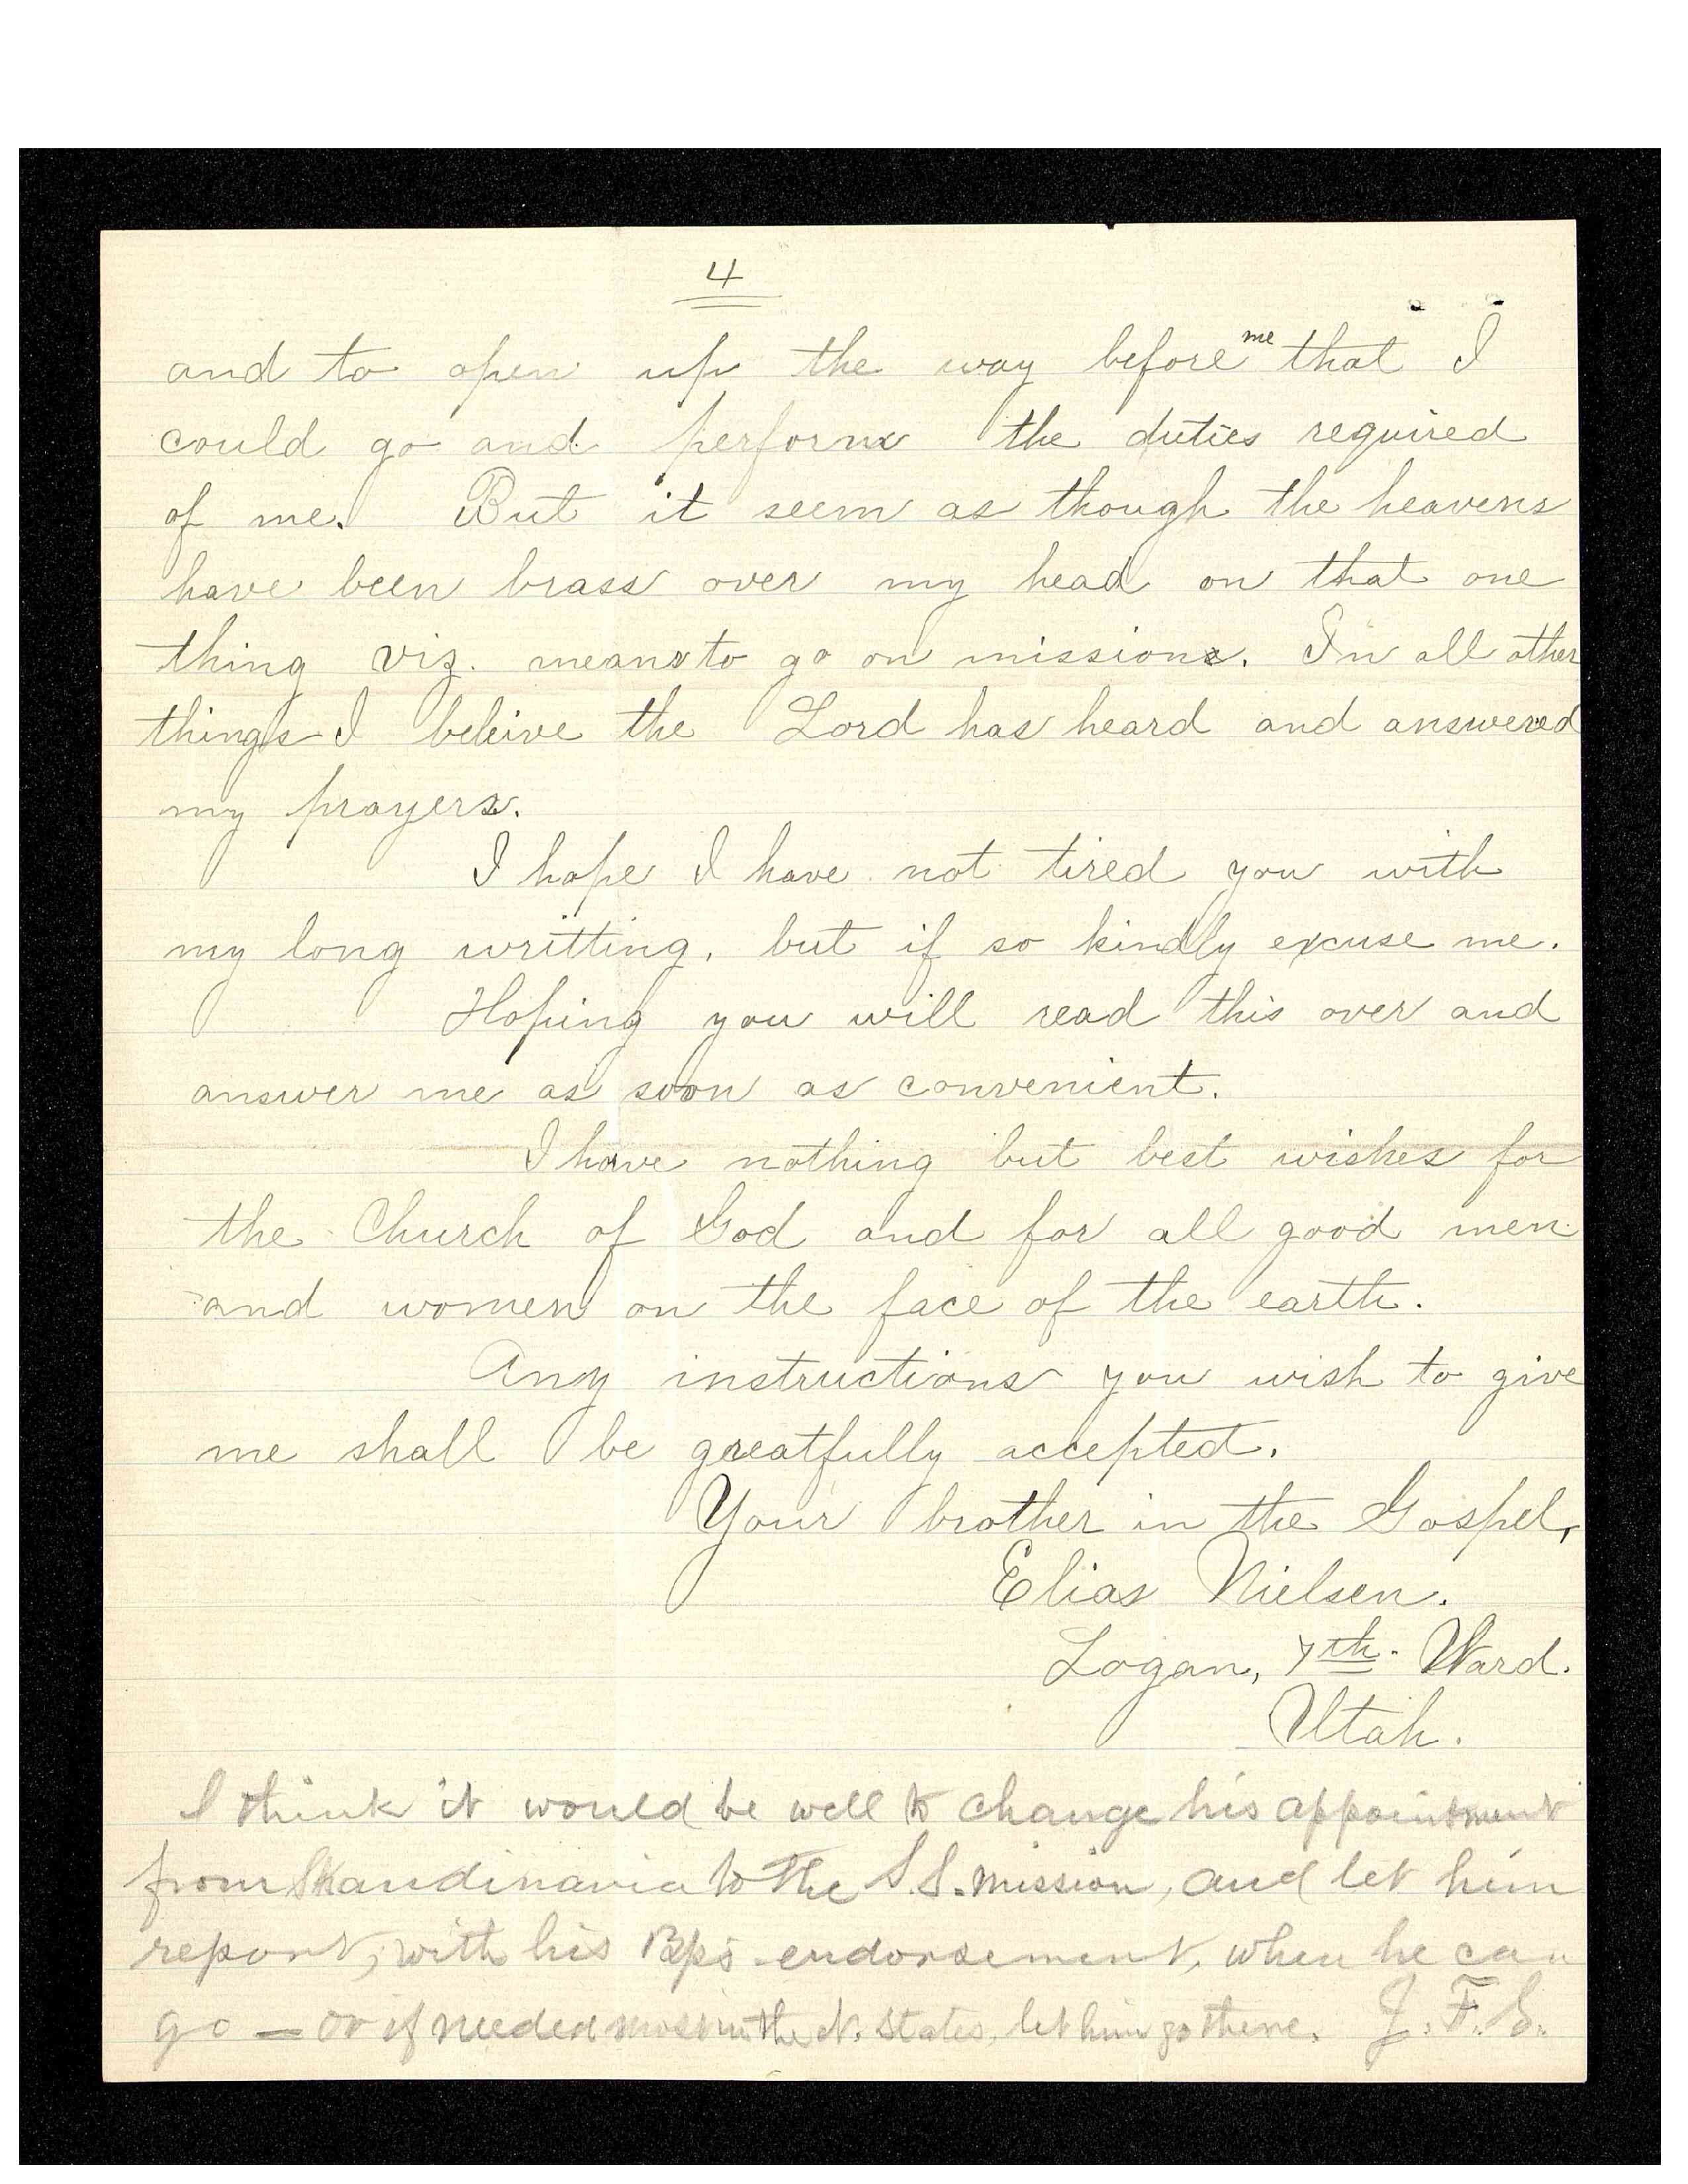 4
and to open up the way before me that I
could go and perform the duties required
of me. But it seem as though the heavens
have been brass over my head on that one
thing viz. means to go on missions. In all other
things I beleive the Lord has heard and answered
my prayers.
I hope I have not tired you with
my long writting, but if so kindly excuse me.
Hoping you will read this over and
answer me as soon as convenient.
I have nothing but best wishes for
the Church of God and for all good men
and women on the face of the earth.
Any instructions you wish to give
me shall be greatfully accepted.
Your brother in the Gospel,
Elias Nielsen.
Logan, 7th. Ward.
Utah.
I think it would be well to change his appointment
from Skandinavia to the S.S. mission, and let him
report, with his Bps endorsement, when he can
go — or if needed most in the N. States, let him go there. J. F. S.